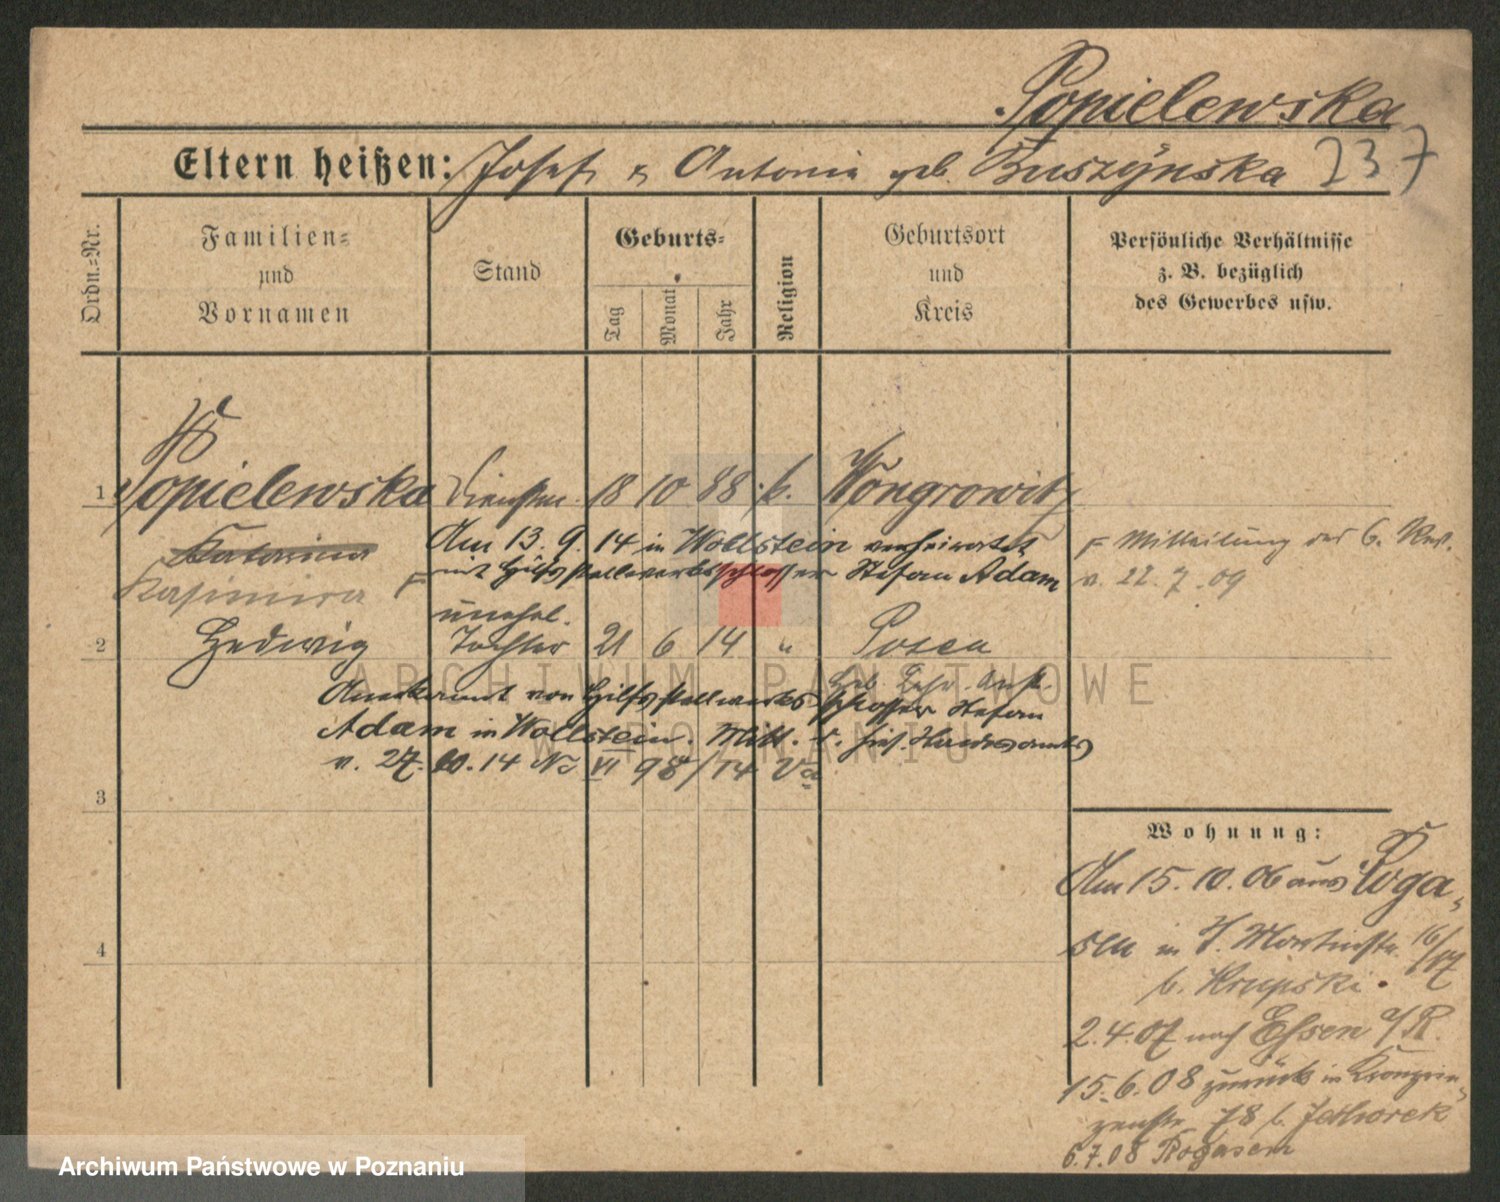 Popielewska
Eltern heißen: Josef & Antonie geb. Buszÿnska 237
Ordn.-Nr.
Familien-
und
Vornamen
Stand
Geburts-
Tag
Monat
Jahr
Religion
Geburtsort
und
Kreis
Persönliche Verhältnisse
z. B. bezüglich
des Gewerbes usw.
1 Popielewska 18 10 88 k. Wongrowitz
Katarina
Kasimira
Am 13. 9. 14 in Wollstein verheiratet
mit Hilfsstellwerksschlosser Stefan Adam
F Mitteilung des 6. Rev.
v. 22. 7. 09
unehel.
2 Hedwig Tochter 21 6 14 " Posen
Anerkannt von Hilfsstellwerksschlosser Stefan
Adam in Wollstein. Mitt. d. Standesamts
v. 27. 10. 14 No VI 98/14 Va
3
4
Wohnung:
Am 15. 10. 06 aus Roga-
sen in St. Martinstr. 16/17
b. Krupski.
2. 4. 07 nach Essen a/R.
15. 6. 08 zurück in Kronprin-
zenstr. 78 b.
6. 7. 08 Rogasen
ARCHIWUM PAŃSTWOWE
W POZNANIU
Archiwum Państwowe w Poznaniu